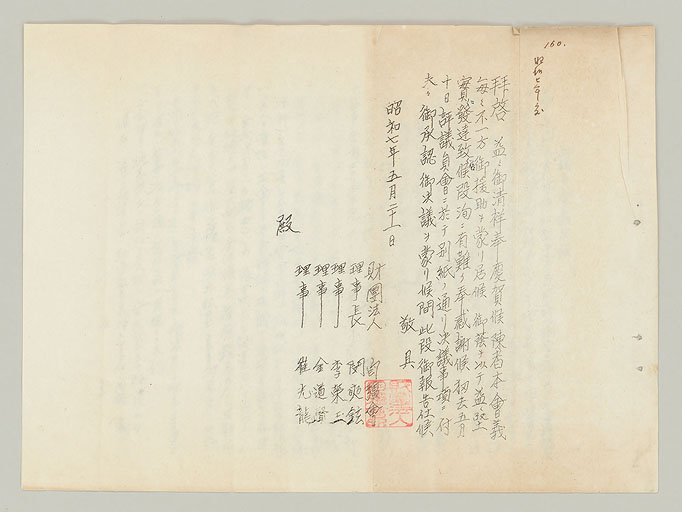 160.
昭和七年度
拝啓 益々御清祥奉慶賀候陳者本會義
毎々不一方御援助ヲ蒙リ居候 御蔭ヲ以テ益堅
實發達致候段洵ニ有難ク奉感謝候 扨去五月
十日評議員會ニ於テ別紙ノ通リ決議事項ニ付
夫々御承認御決議ヲ蒙リ候間此段御報告仕候
敬具
昭和七年五月二十一日
財團法人
理事長 閔奭鉉
理事 李榮三
理事 金道
理事 崔光龍
殿